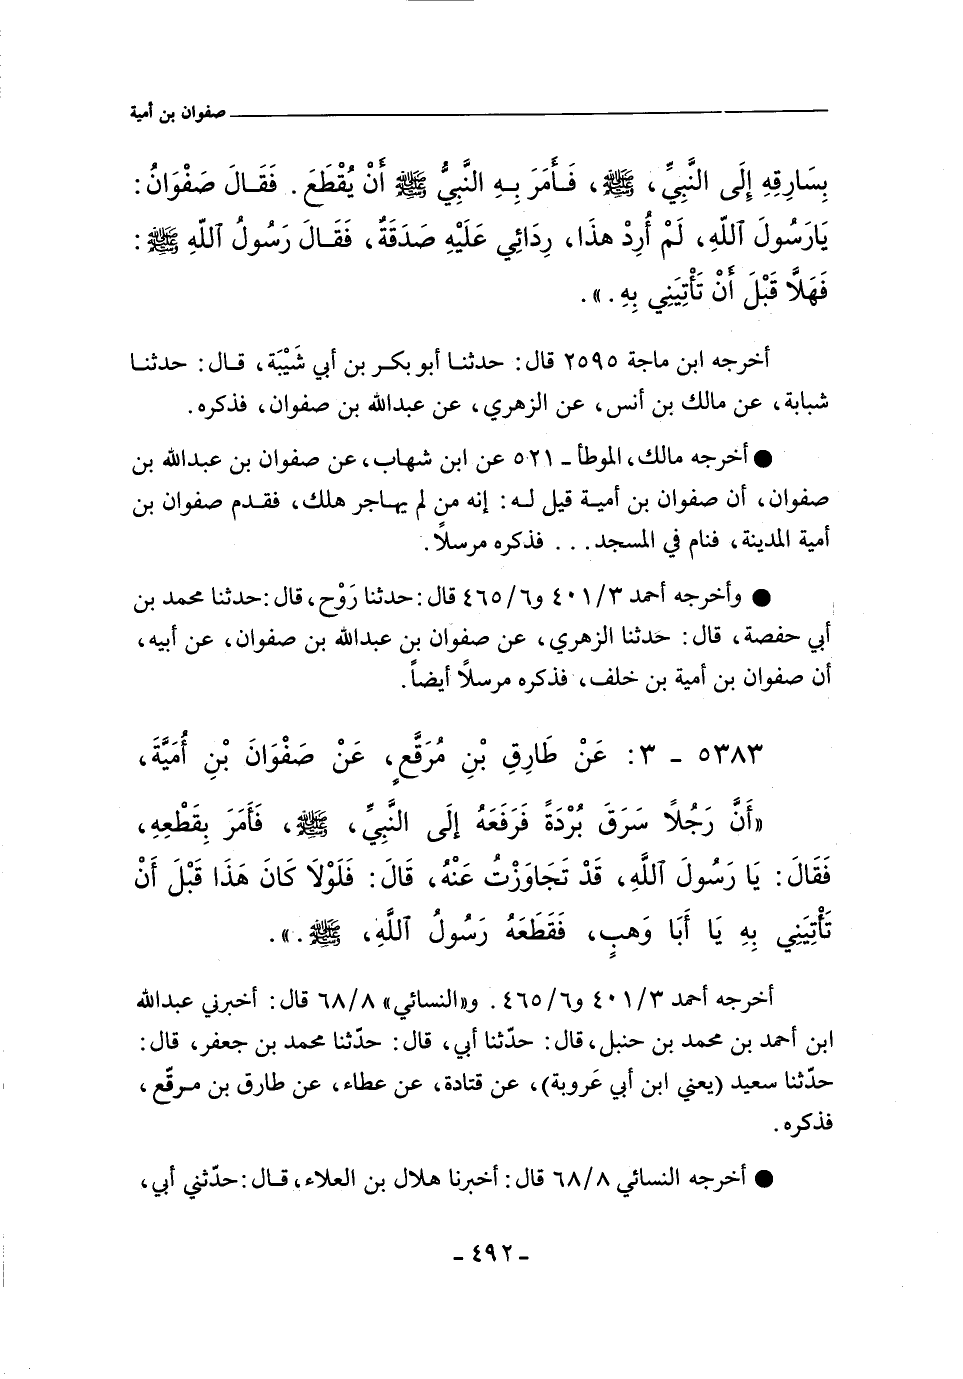 صفوان بن أمية
بِسَارِقِهِ إِلَى النَّبِيِّ، ﷺ، فَأَمَرَ بِهِ النَّبِيُّ ﷺ أَنْ يُقْطَعَ. فَقَالَ صَفْوَانُ:
يَارَسُولَ ٱللّهِ، لَمْ أُرِدْ هذَا، رِدَائِي عَلَيْهِ صَدَقَةٌ، فَقَالَ رَسُولُ ٱللّهِ ﷺ:
فَهَلاَّ قَبْلَ أَنْ تَأْتِيَنِي بِهِ.».
أخرجه ابن ماجة ٢٥٩٥ قال: حدثنا أبو بكر بن أبي شَيْبَة، قال: حدثنا
شبابة، عن مالك بن أنس، عن الزهري، عن عبدالله بن صفوان، فذكره.
● أخرجه مالك، الموطأ - ٥٢١ عن ابن شهاب، عن صفوان بن عبدالله بن
صفوان، أن صفوان بن أمية قيل له: إنه من لم يهاجر هلك، فقدم صفوان بن
أمية المدينة، فنام في المسجد... فذكره مرسلاً.
● وأخرجه أحمد ٤٠١/٣ و٤٦٥/٦ قال: حدثنا رَوْح، قال: حدثنا محمد بن
أبي حفصة، قال: حَدثنا الزهري، عن صفوان بن عبدالله بن صفوان، عن أبيه،
أن صفوان بن أمية بن خلف، فذكره مرسلاً أيضاً.
٥٣٨٣ - ٣: عَنْ طَارِقِ بْنِ مُرَقَّعٍ، عَنْ صَفْوَانَ بْنِ أُمَيَّةَ،
«أَنَّ رَجُلاً سَرَقَ بُرْدَةً فَرَفَعَهُ إِلَى النَّبِيِّ، ﷺ، فَأَمَرَ بِقَطْعِهِ،
فَقَالَ: يَا رَسُولَ ٱللَّهِ، قَدْ تَجَاوَزْتُ عَنْهُ، قَالَ: فَلَوْلاَ كَانَ هَذَا قَبْلَ أَنْ
تَأْتِيَنِي بِهِ يَا أَبَا وَهبٍ، فَقَطَعَهُ رَسُولُ ٱللَّهِ، ﷺ.».
أخرجه أحمد ٤٠١/٣ و٤٦٥/٦. و«النسائي» ٦٨/٨ قال: أخبرني عبدالله
ابن أحمد بن محمد بن حنبل، قال: حدّثنا أبي، قال: حدّثنا محمد بن جعفر، قال:
حدّثنا سعيد (يعني ابن أبي عَروبة)، عن قتادة، عن عطاء، عن طارق بن مرقّع،
فذكره.
● أخرجه النسائي ٦٨/٨ قال: أخبرنا هلال بن العلاء، قال: حدّثني أبي،
- ٤٩٢ -